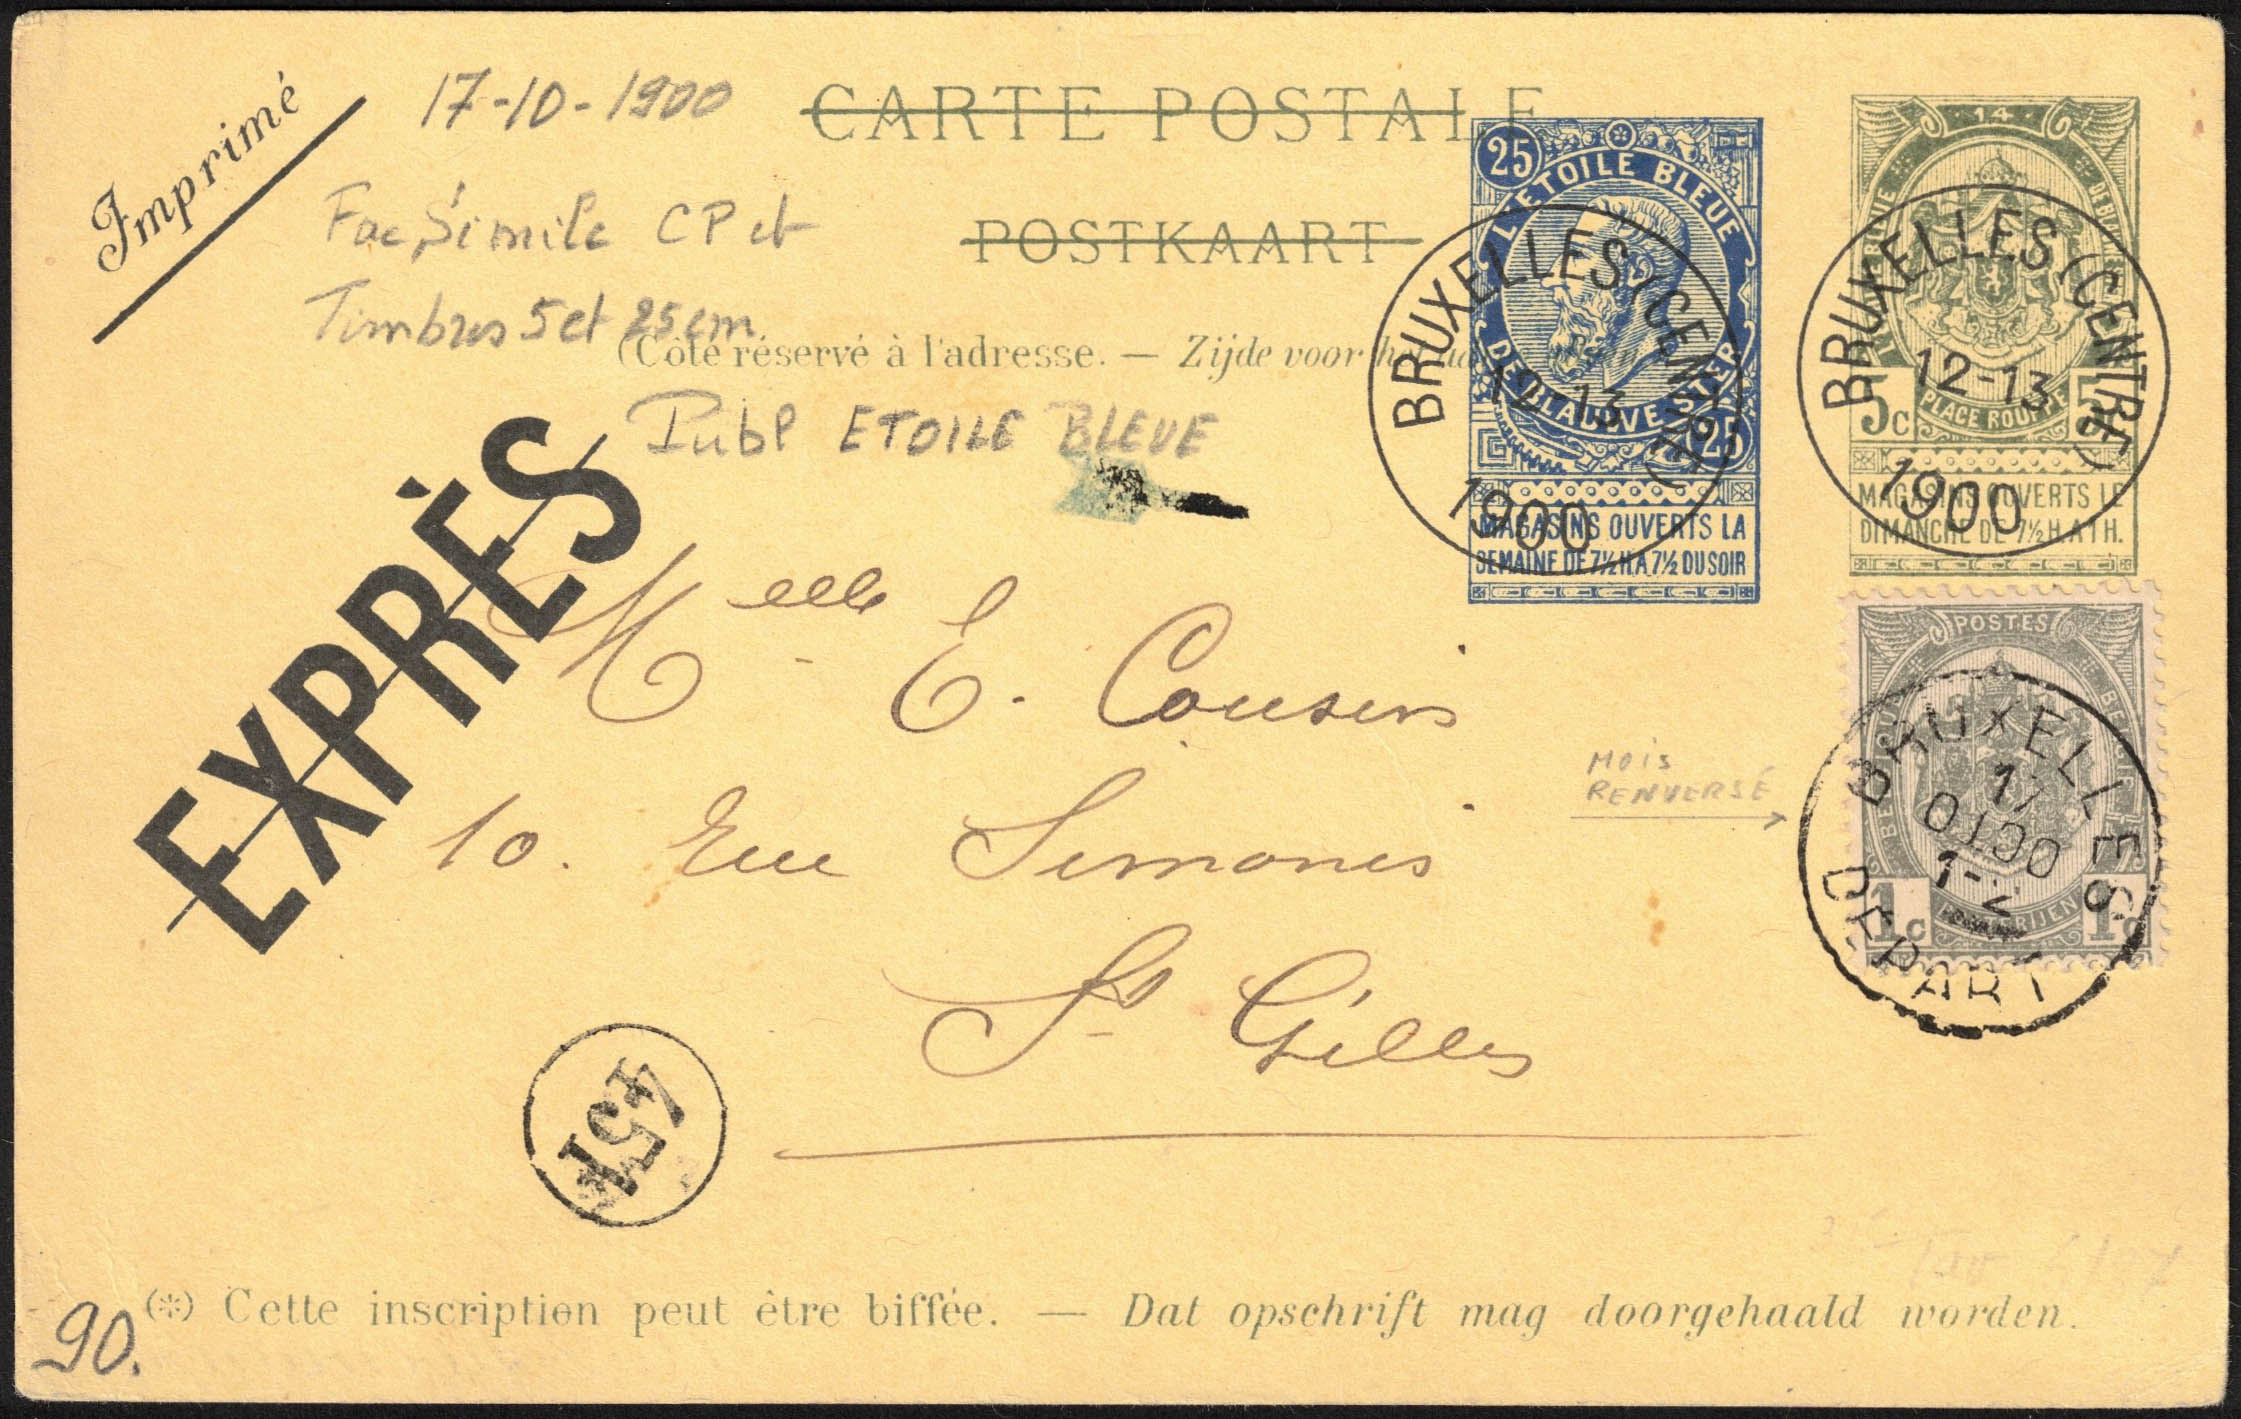 Imprimé
17-10-1900
CARTE POSTALE
Fac Simile CP et
POSTKAART
Timbres 5 et 25 cm
(Côté réservé à l'adresse. — Zijde voor
Publ ETOILE BLEUE
EXPRÈS
25
L'ETOILE BLEUE
DE BLAUWE STER
25
MAGASINS OUVERTS LA
SEMAINE DE 7½ H. A 7½ DU SOIR
BRUXELLES (CENTRE)
12-13
1900
14
5c
PLACE ROUPPE
MAGASINS OUVERTS LE
DIMANCHE DE 7½ H. A 1 H.
BRUXELLES (CENTRE)
12-13
1900
POSTES
1c
POSTERIJEN
1c
BRUXELLES
17
OCTO
1-2
DEPART
MOIS
RENVERSÉ
Melle E. Cousin
10. Rue Simonis
St Gilles
90.
(*) Cette inscription peut être biffée. — Dat opschrift mag doorgehaald worden.